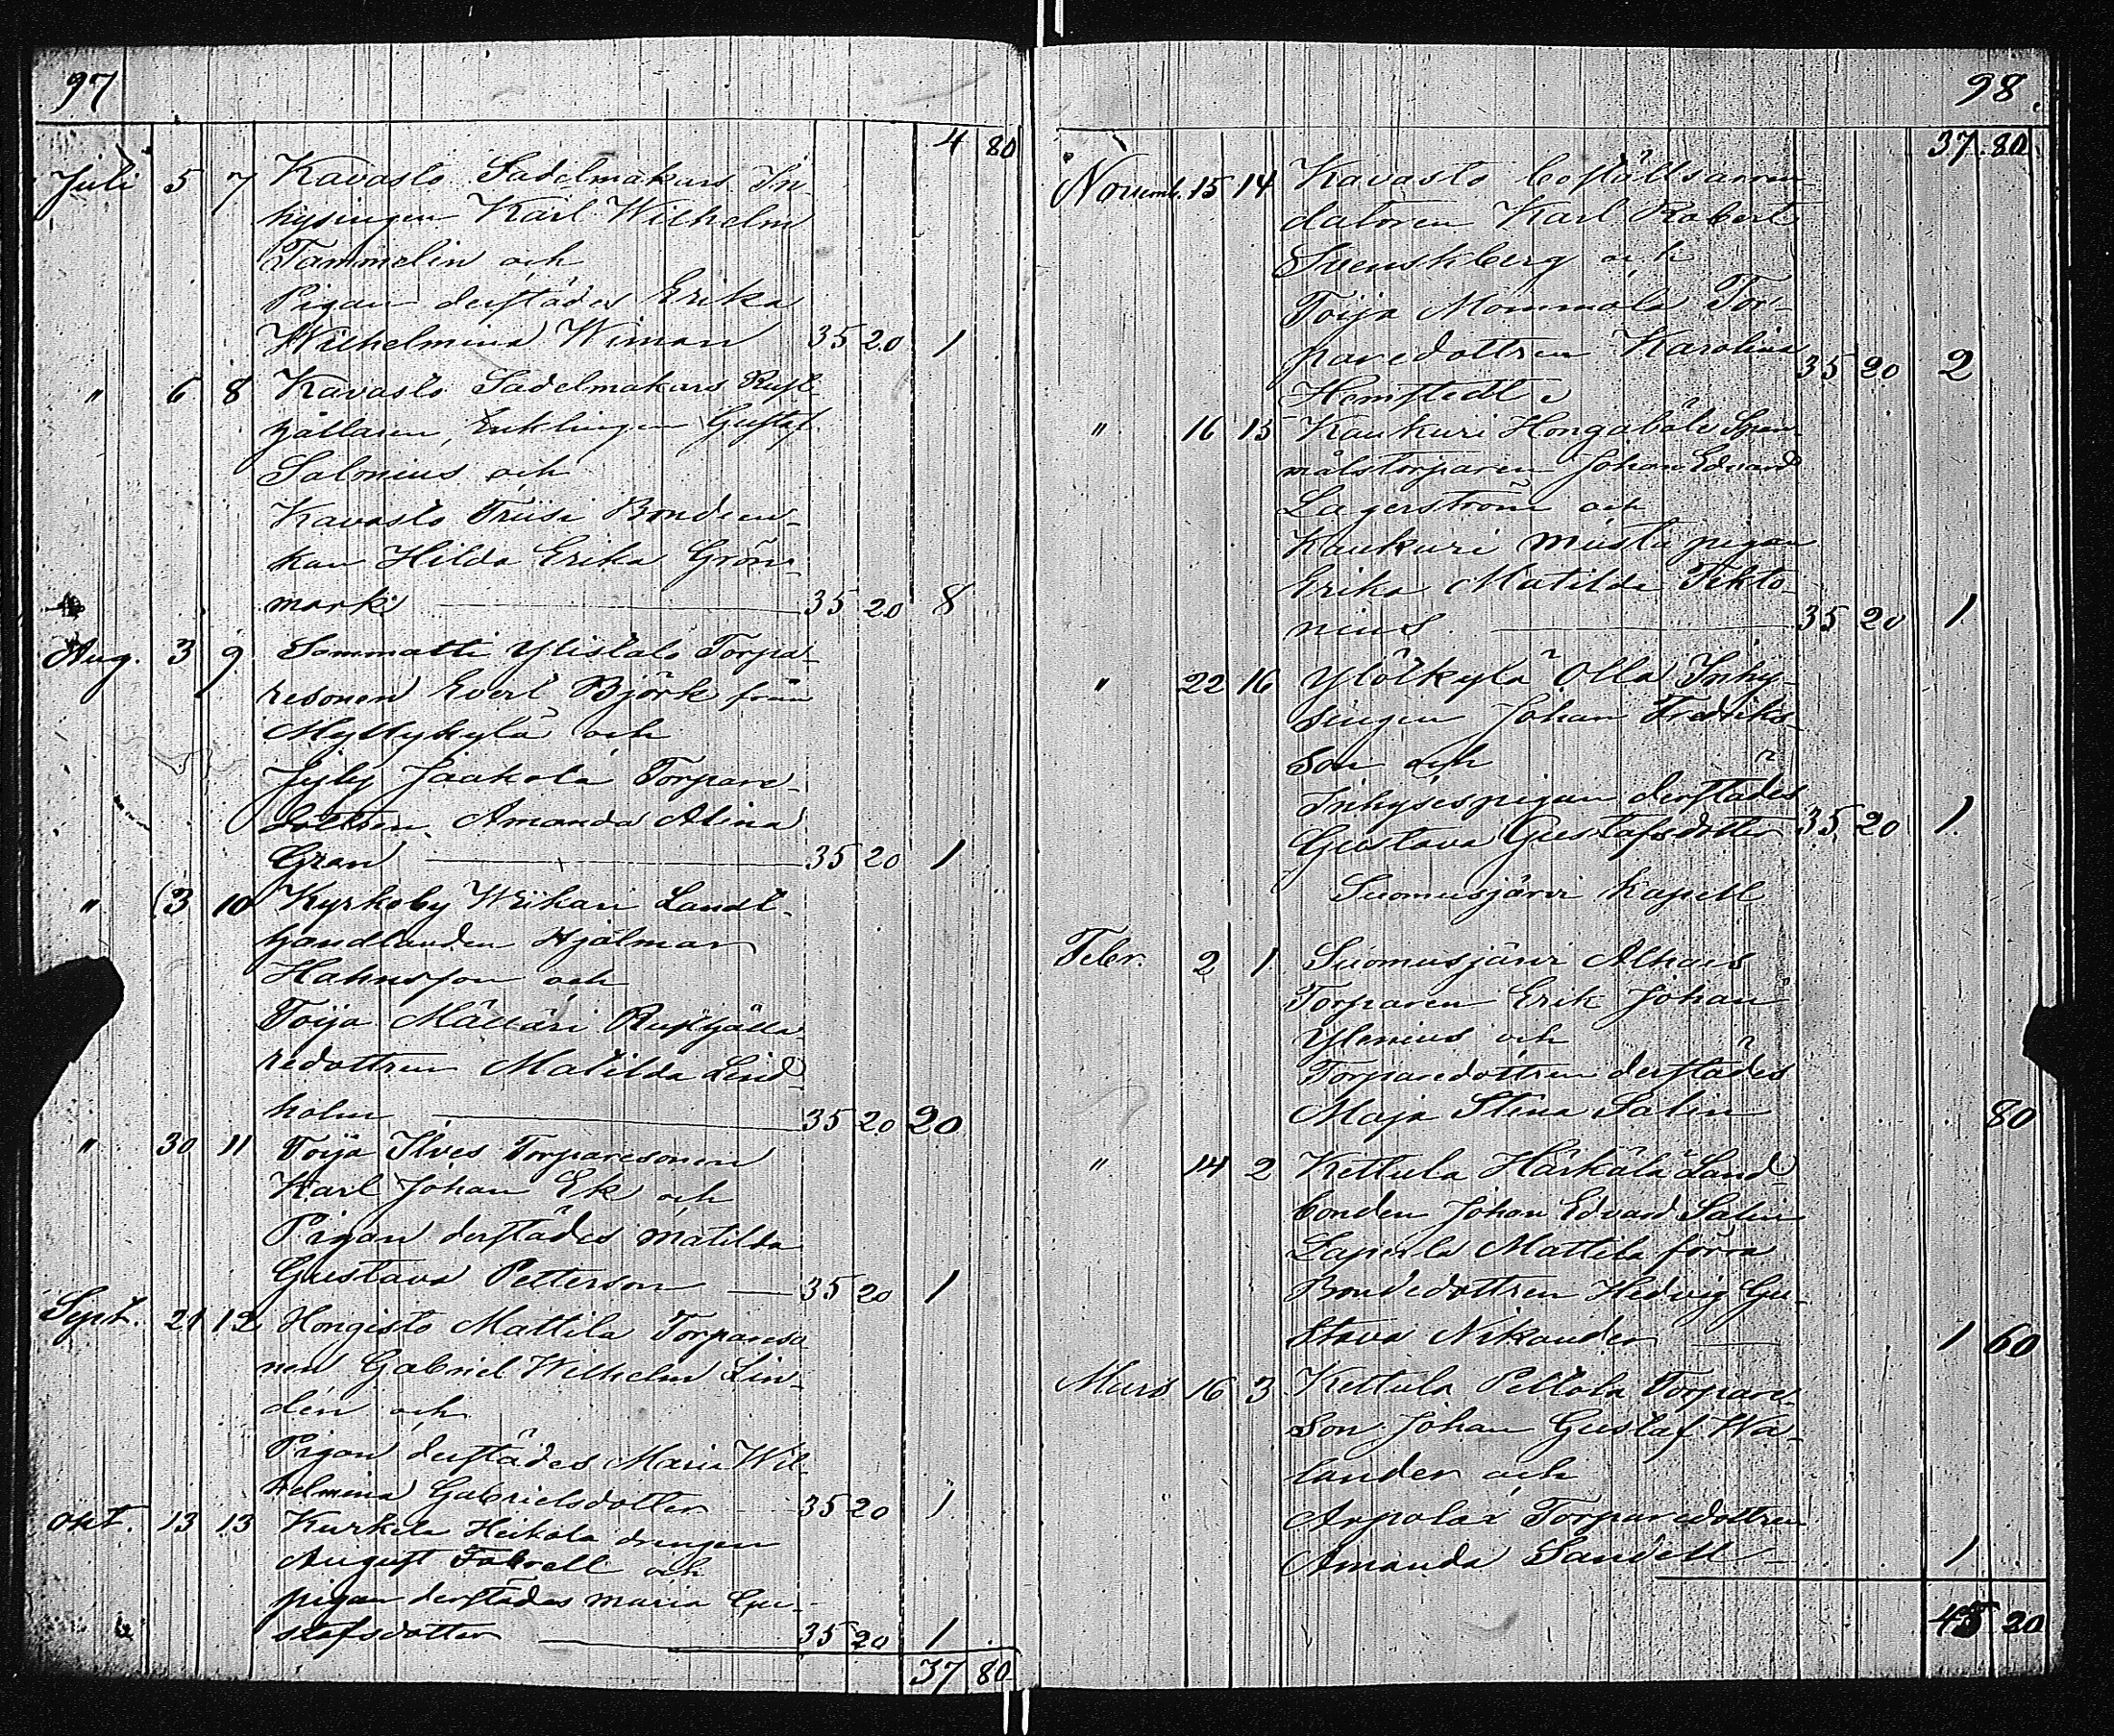 97
4 80
Juli 5 7 Kavasto Sadelmakars In-
hysingen Karl Wilhelm
Tammelin och
Pigan derstädes Erika
Wilhelmina Wiman 35 20 1
" 6 8 Kavasto Sadelmakars Rust-
hållaren, Enklingen Gustaf
Salonius och
Kavasto Truisi Bondeen-
kan Hilda Erika Grön-
mark 35 20 8
Aug. 3 9 Sammatti Ylistalo Torpa-
resonen Evert Björk från
Myllykylä och
Jyly Jaakola Torpare-
dottren Amanda Alina
Gran 35 20 1
" 3 10 Kyrkoby Weikari Landt-
handlanden Hjalmar
Hahnsson och
Toija Mällari Rusthålla-
redottren Matilda Lind-
holm 35 20 20
" 30 11 Toija Ilves Torparesonen
Karl Johan Ek och
Pigan derstädes Matilda
Gustava Petterson 35 20 1
Sept. 21 12 Hongisto Mattila Torpareso-
nen Gabriel Wilhelm Lin-
dén och
Pigan derstädes Maria Wil-
helmina Gabrielsdotter 35 20 1
Okt. 13 13 Kurkela Heikola drengen
August och
pigan derstädes Maria Gu-
stafsdotter 35 20 1
37 80
98.
37 80
Novemb. 15 14 Kavasto boställsarren-
datoren Karl Robert
Svenskberg och
Toija Mommola Tor-
paredottren Karolina
Hemstedt 35 20 2
" 16 15 Kaukuri Hongabäle Span-
målstorparen Johan Edvard
Lagerström och
Kaukuri Musta pigan
Erika Matilda Tekto-
nius 35 20 1
" 22 16 Ylölkylä Olla Inhy-
singen Johan Fredriks-
son och
Inhysespigan derstädes
Gustava Gustafsdotter 35 20 1.
Suomusjärvi Kapell
Febr. 2 1 Suomusjärvi Alhais
Torparen Erik Johan
Ylenius och
Torparedottren derstädes
Maja Stina Salin 80
" 14 2 Kettula Härkälä Land-
bonden Johan Edvard Salin
Laperla Mattila förra
Bondedottren Hedvig Gu-
stava Nikander 1 60
Mars 16 3 Kettula Peltola Torpare-
son Johan Gustaf Wa-
lander och
Arpalax Torparedottren
Amanda Sandell 1
45 20